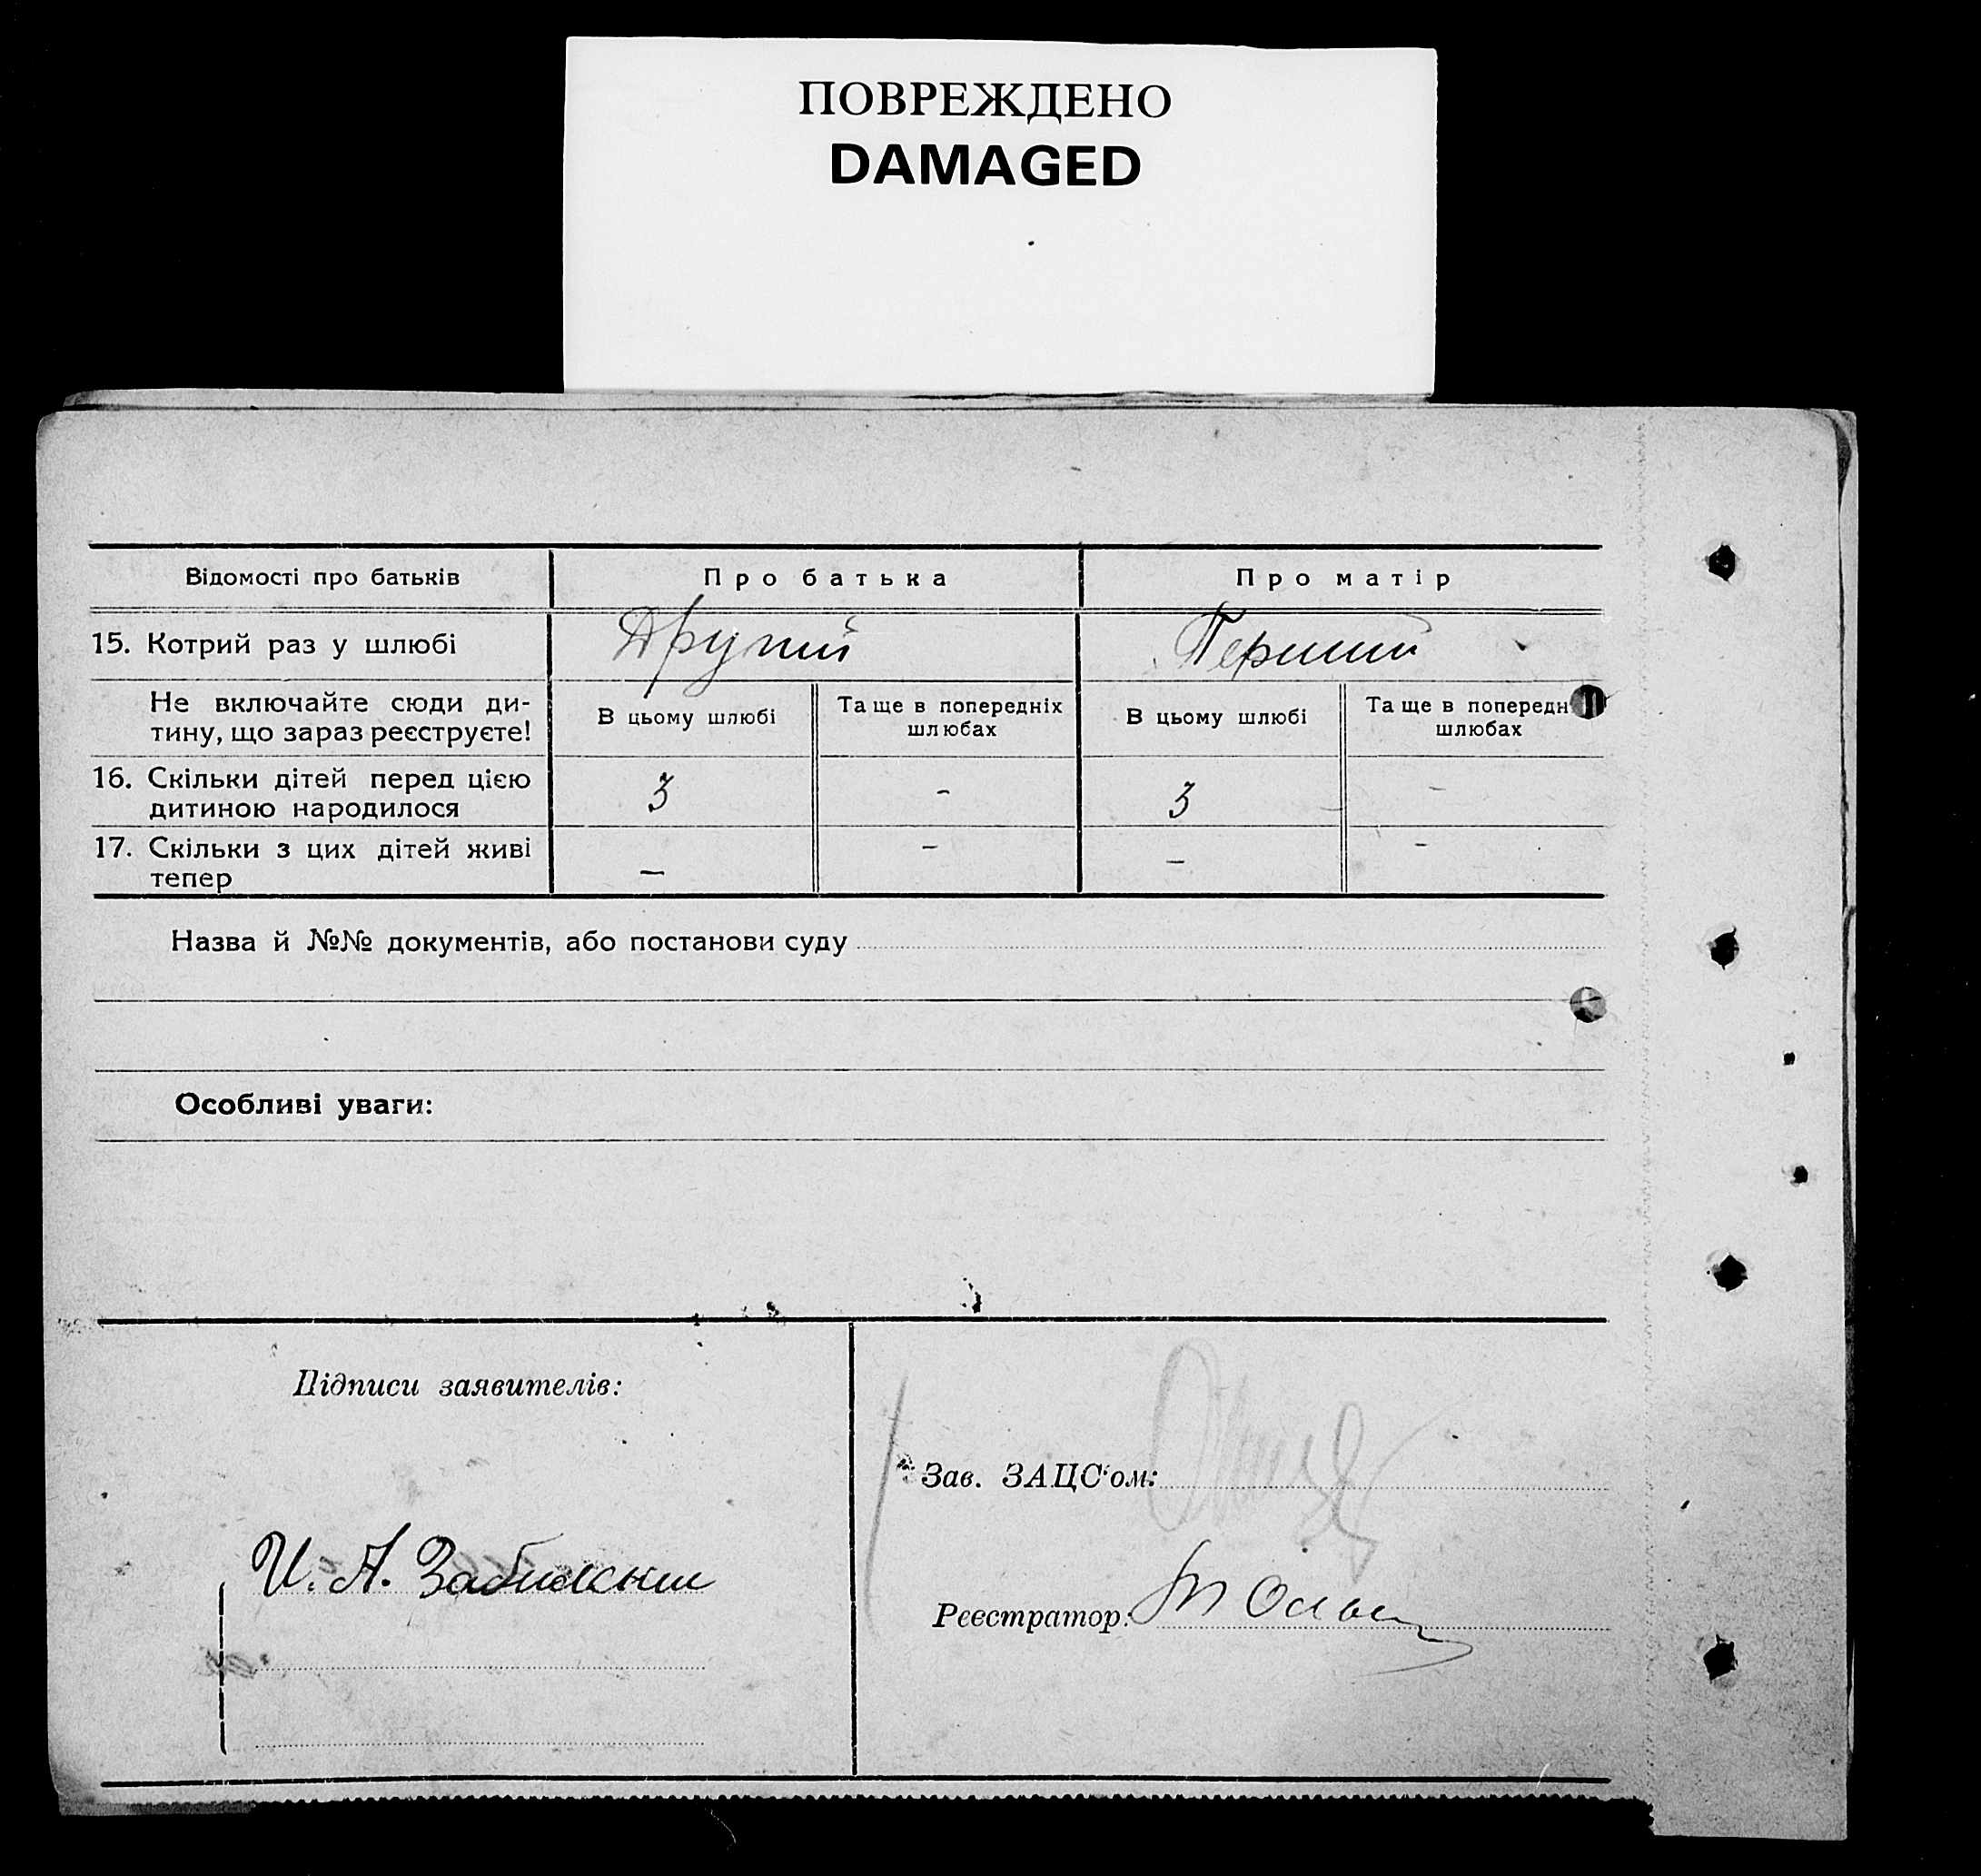 ПОВРЕЖДЕНО
DAMAGED
Відомості про батьків
Про батька
Про матір
15. Котрий раз у шлюбі
Другий
Перший
Не включайте сюди ди-
тину, що зараз реєструєте!
В цьому шлюбі
Та ще в попередніх
шлюбах
В цьому шлюбі
Та ще в попередн
шлюбах
16. Скільки дітей перед цією
дитиною народилося
3
-
3
-
17. Скільки з цих дітей живі
тепер
–
-
–
-
Назва й №№ документів, або постанови суду
Особливі уваги:
Підписи заявителів:
Зав. ЗАЦС'ом:
И. А.
Реєстратор: